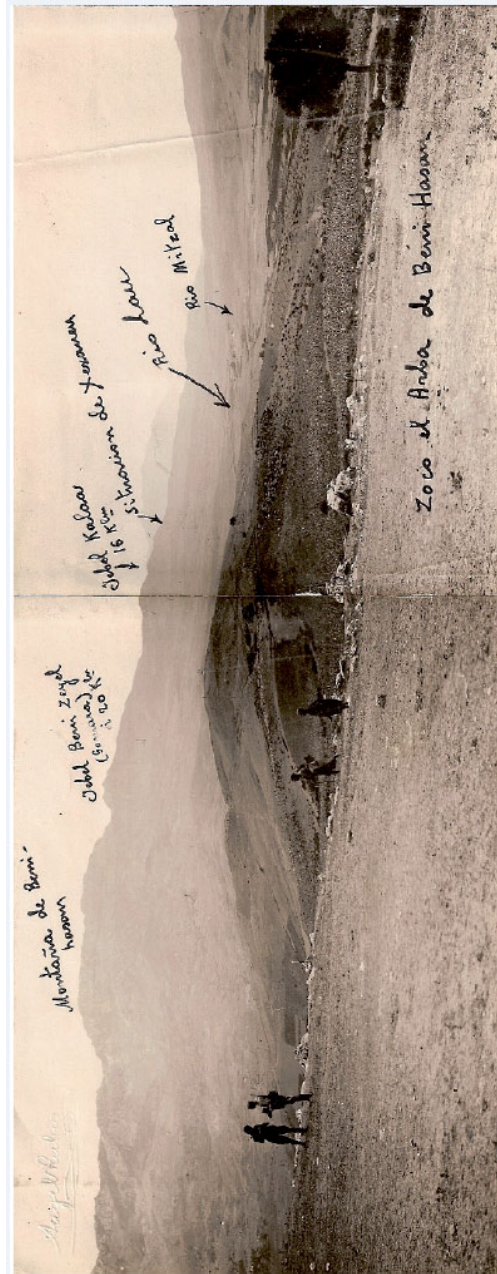 Montaña de Beni-
hasan
Jebel Beni Zeyel
(Gomara)
a 20 Km
Jebel Kalaa
16 Km
situacion de Xexauen
Rio Lau
Rio Mitzal
Zoco el Arba de Beni Hasan